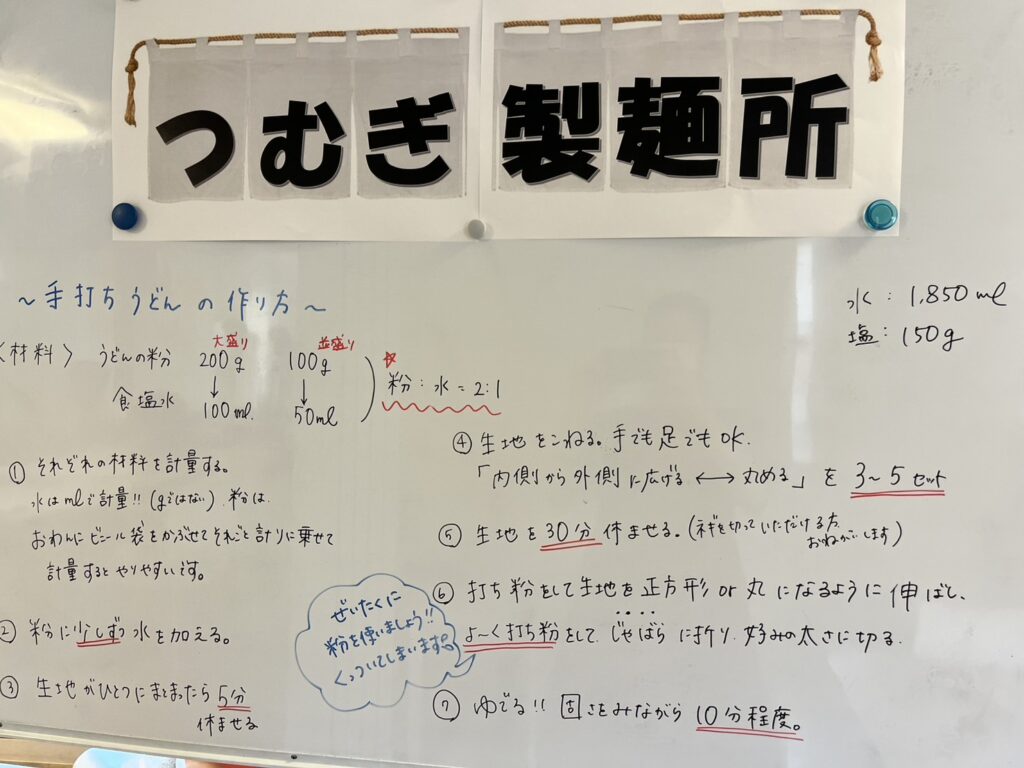 つむぎ製麺所
〜手打ちうどんの作り方〜
水：1,850ml
塩：150g
〈材料〉 うどんの粉 大盛り 200g 並盛り 100g
食塩水 ↓100ml. ↓50ml
☆粉：水＝2:1
① それぞれの材料を計量する。
水はmlで計量!!(gではない) 粉は、
おわんにビニール袋をかぶせてそれごと計りに乗せて
計量するとやりやすいです。
② 粉に少しずつ水を加える。
③ 生地がひとつにまとまったら5分
休ませる
④ 生地をこねる。手でも足でもOK.
「内側から外側に広げる ⟷ 丸める」を 3〜5セット
⑤ 生地を30分休ませる。(ネギを切っていただける方、
おねがいします)
⑥ 打ち粉をして生地を正方形or丸になるように伸ばし、
よ〜く打ち粉をして、じゃばらに折り、好みの太さに切る.
ぜいたくに
粉を使いましょう!!
くっついてしまいます
⑦ ゆでる!! 固さをみながら 10分程度。